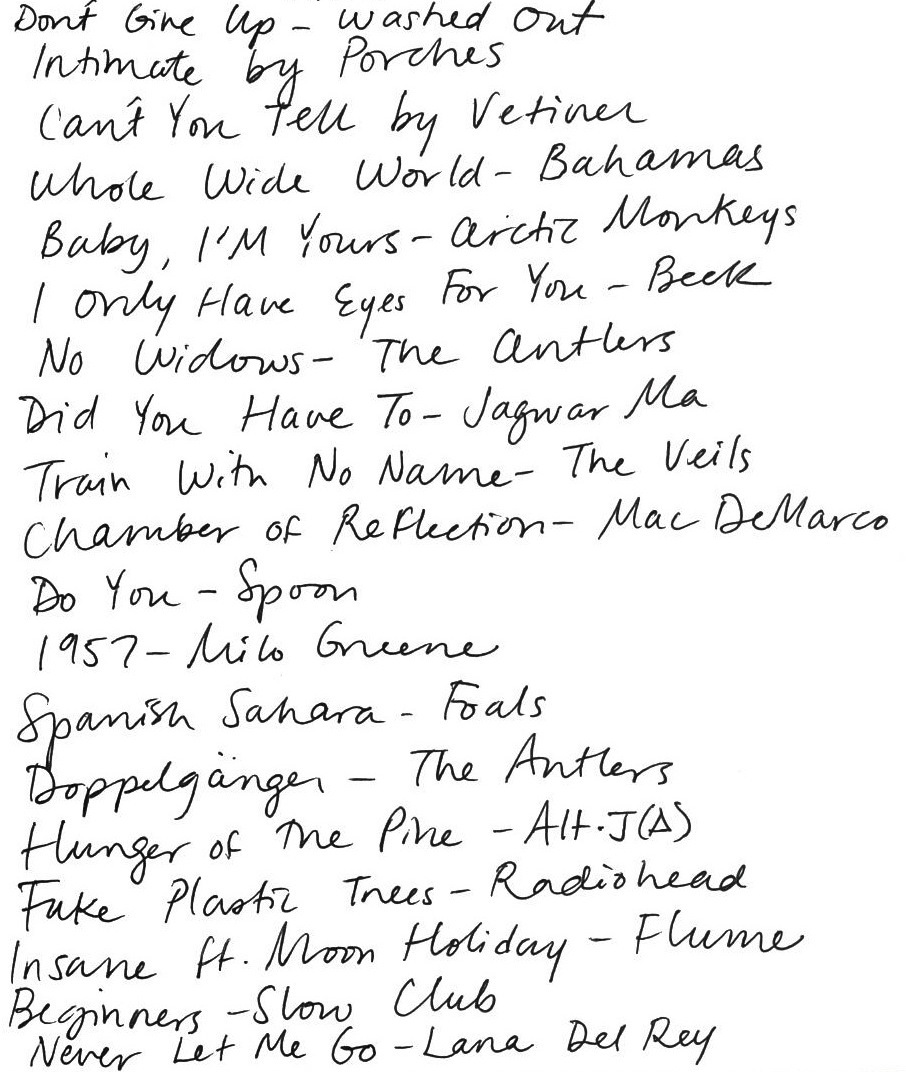 Don't Give Up - Washed Out
Intimate by Porches
Can't You Tell by Vetiver
Whole Wide World - Bahamas
Baby, I'M Yours - Arctic Monkeys
I Only Have Eyes For You - Beck
No Widows - The Antlers
Did You Have To - Jagwar Ma
Train With No Name - The Veils
Chamber of Reflection - Mac DeMarco
Do You - Spoon
1957 - Milo Greene
Spanish Sahara - Foals
Doppelgänger - The Antlers
Hunger of The Pine - Alt-J(∆)
Fake Plastic Trees - Radiohead
Insane ft. Moon Holiday - Flume
Beginners - Slow Club
Never Let Me Go - Lana Del Rey